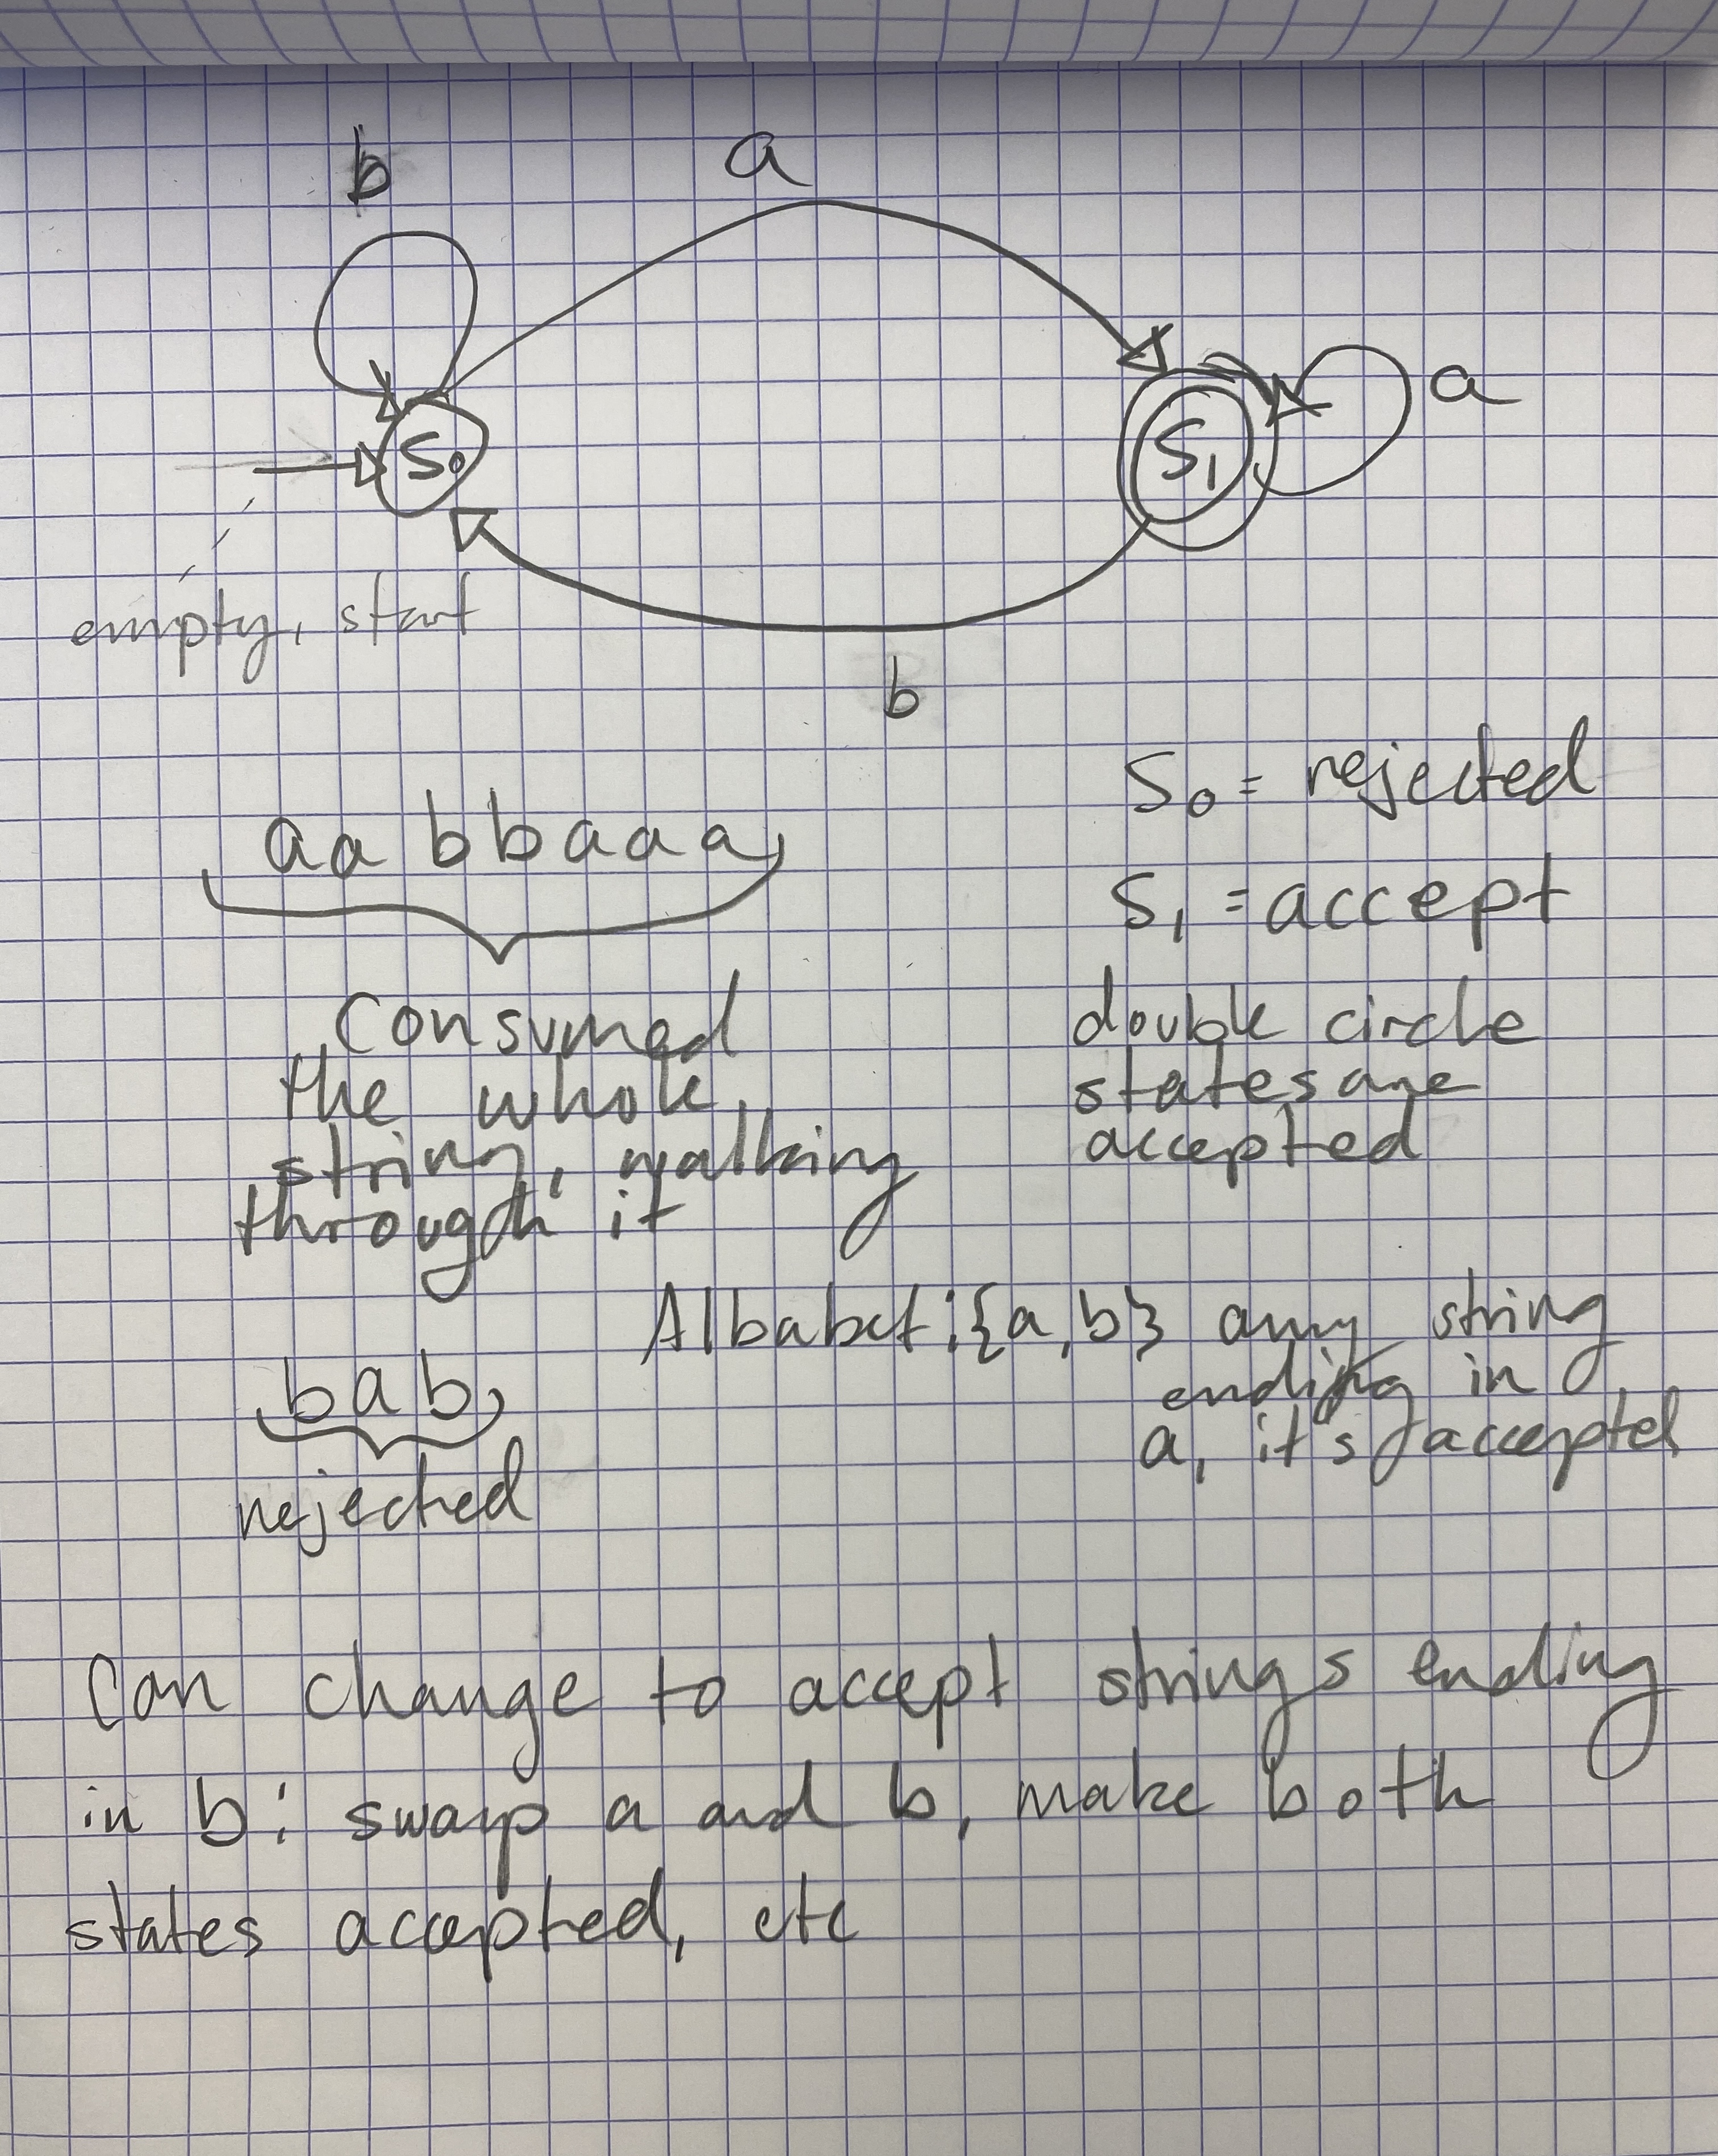 b
a
S0
S1
a
empty, start
b
S0 = rejected
aabbaaa
S1 = accept
Consumed
the whole
string, walking
through it
double circle
states are
accepted
Albabet: {a,b} any string
ending in
a, it's accepted
bab
rejected
Can change to accept strings ending
in b: swap a and b, make both
states accepted, etc